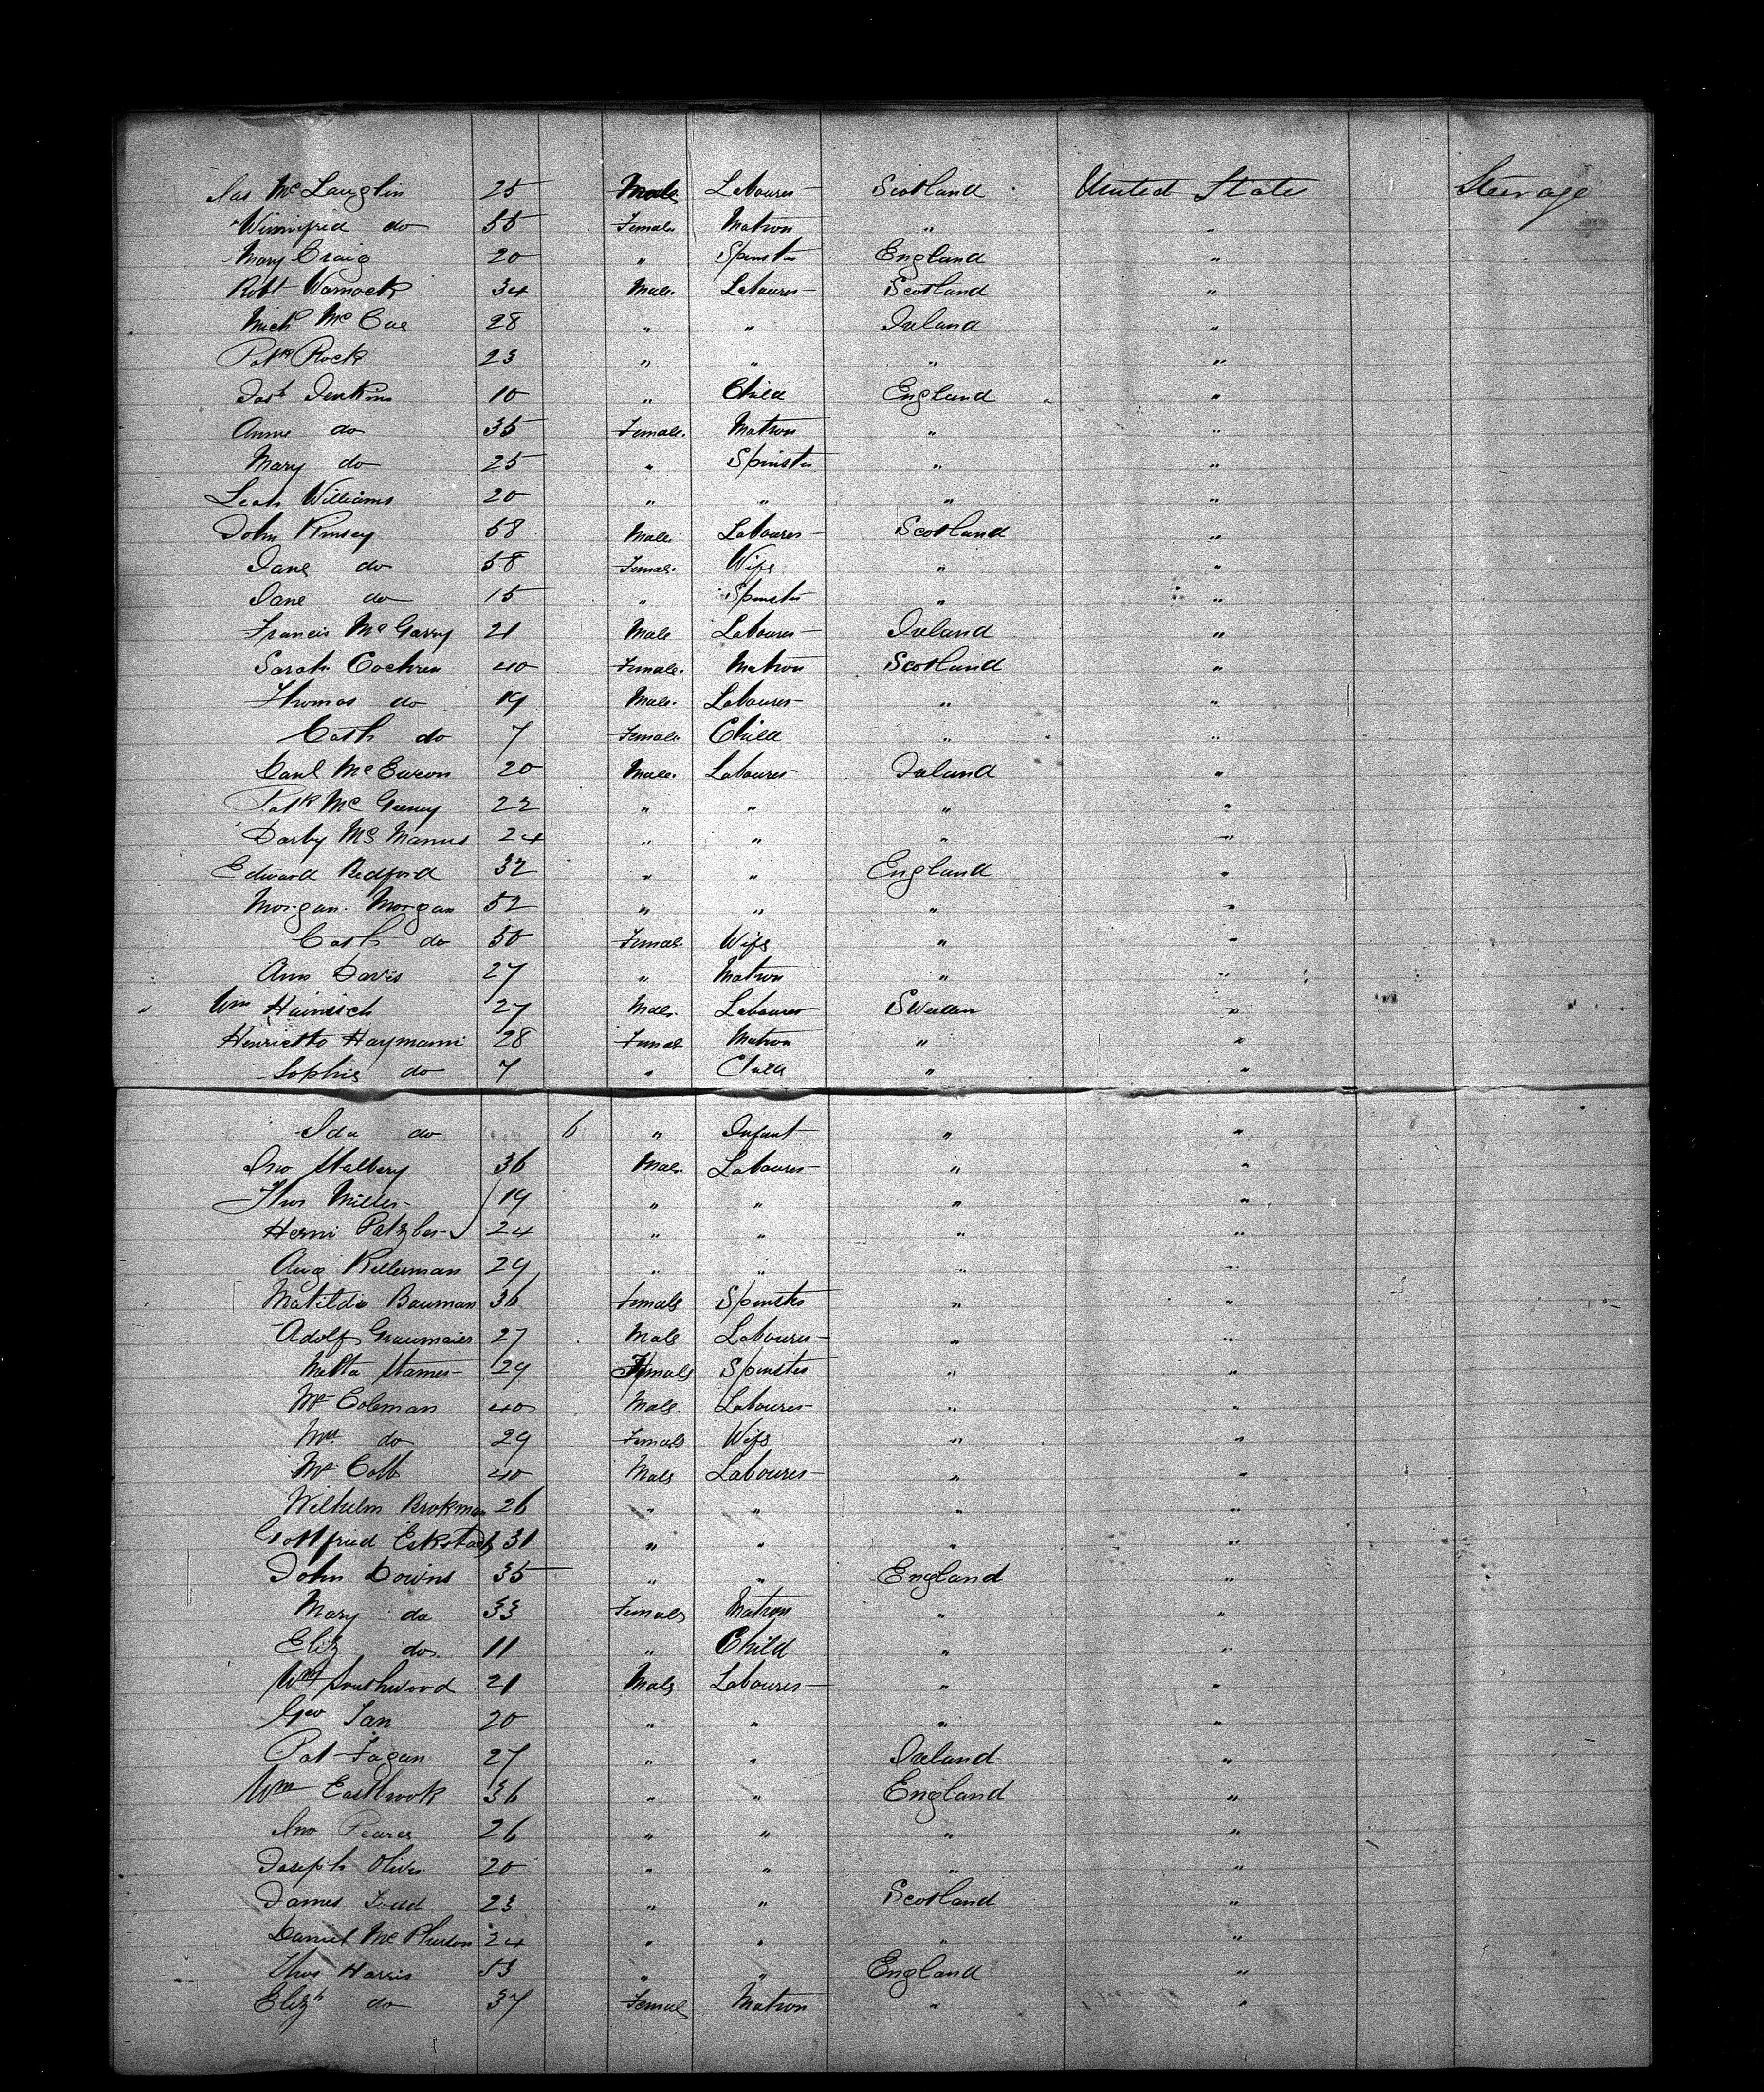 Jas McLauglin 25 Male Labourer Scotland United States Steerage
Winnifred do 55 Female Matron " "
Mary Craig 20 " Spinster England "
Robt Warnock 34 Male Labourer Scotland "
Michl McCue 28 " " Ireland "
Patk Rock 23 " " " "
Josh Jenkins 10 " Child England "
Annie do 35 Female Matron " "
Mary do 25 " Spinster " "
Leah Williams 20 " " " "
John Kinsey 58 Male Labourer Scotland "
Jane do 58 Female Wife " "
Jane do 15 " Spinster " "
Francis McGarry 21 Male Labourer Ireland "
Sarah Cochren 40 Female Matron Scotland "
Thomas do 19 Male Labourer " "
Cath do 7 Female Child " "
Danl 20 Male Labourer Ireland "
Patk Mc 22 " " " "
Darby McManus 24 " " " "
Edward Bedford 32 " " England "
Morgan Morgan 52 " " " "
Cath do 50 Female Wife " "
Ann Davis 27 " Matron " "
Wm Heinrich 27 Male Labourer Sweden "
Henrietta Haymann 28 Female Matron " "
Sophie do 7 " Child " "
Ida do 6 " Infant " "
Jno Stalbery 36 Male Labourer " "
Thos Miller 19 " " " "
24 " " " "
Aug Kellerman 29 " " " "
Matilda Bauman 36 Female Spinster " "
Adolf Graumaier 27 Male Labourer " "
29 Female Spinster " "
Mr Coleman 40 Male Labourer " "
Mrs do 29 Female Wife " "
Mr 40 Male Labourer " "
Wilhelm Brokman 26 " " " "
Gottfried 31 " " " "
John Downs 35 " " England "
Mary do 33 Female Matron " "
Eliz do 11 " Child " "
Wm Southwood 21 Male Labourer " "
Geo 20 " " " "
Pat Fagan 27 " " Ireland "
Wm Eastbrook 36 " " England "
Jno Pearce 26 " " " "
Joseph Oliver 20 " " " "
James Todd 23 " " Scotland "
Daniel McPherson 24 " " " "
Thos Harris 53 " " England "
Elizh do 37 Female Matron " "